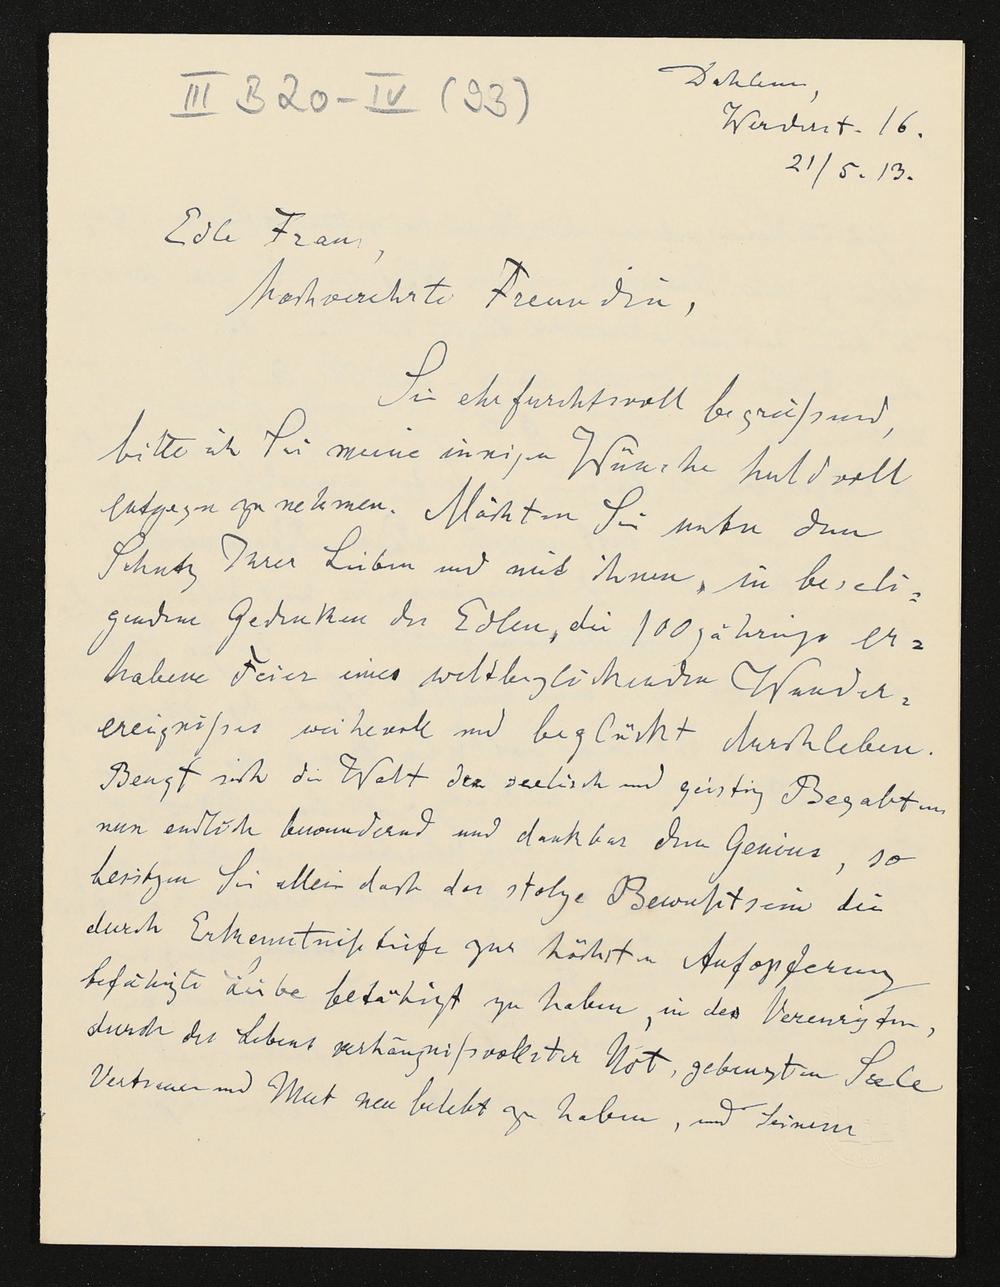 III B 20 - IV (93)
Dahlem,
Werderst. 16.
21/5. 13.
Edle Frau,
hochverehrte Freundin,
Sie ehrfurchtsvoll begrüßend,
bitte ich Sie meine innigen Wünsche huldvoll
entgegen zu nehmen. Möchten Sie unter dem
Schutz Ihrer Lieben und mit ihnen, in beseli-
gendem Gedenken des Edlen, die 100jährige er-
habene Feier eines weltbeglückenden Wunder-
ereignißes weihevoll und beglückt durchleben.
Beugt sich die Welt der seelisch und geistig Begabten
nun endlich bewundernd und dankbar dem Genius, so
besitzen Sie allein doch das stolze Bewußtsein die
durch Erkenntnißtiefe zur höchsten Aufopferung
befähigte Liebe betätigt zu haben, in der Vereinigten,
durch des Lebens verhängnißvollster Not, gebeugten Seele
Vertrauen und Mut neu belebt zu haben, und Seinem